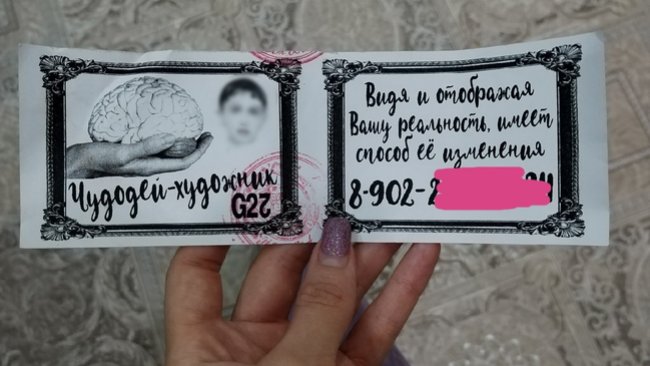 Чудодей-художник
G22
Видя и отображая
Вашу реальность, имеет
способ её изменения
8-902-2